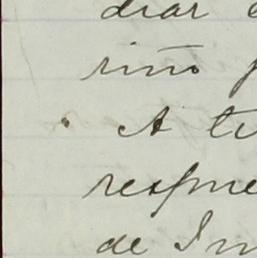 drar
riño
A tu
respue
de Im